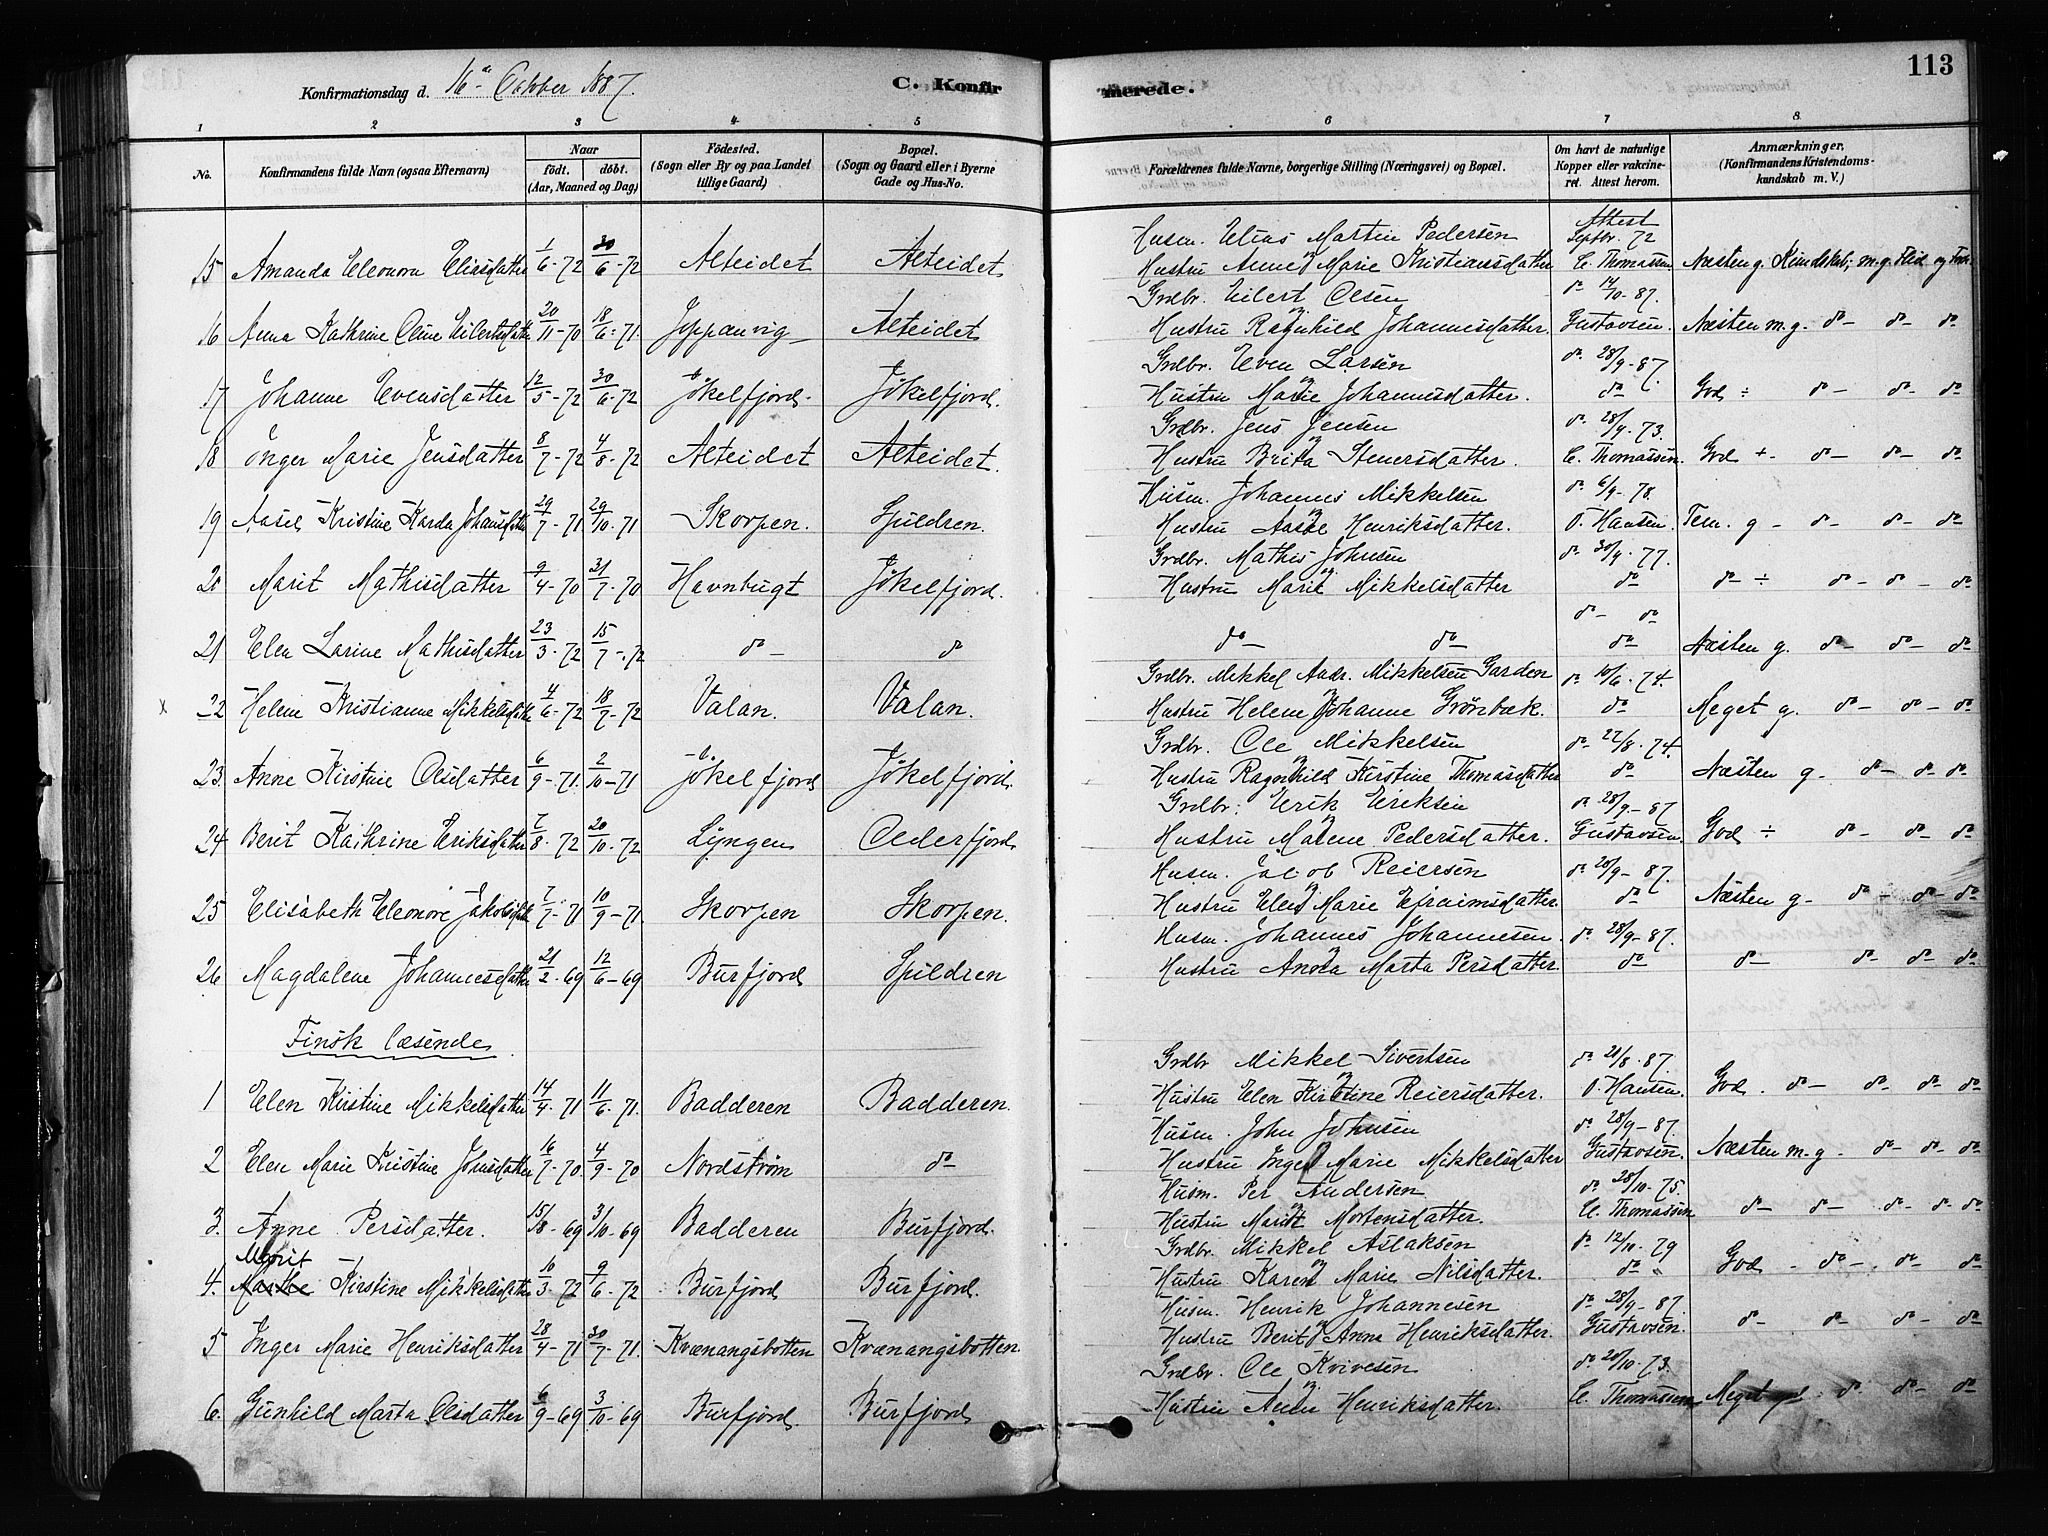 113
Konfirmationsdag d. 16de October 1887.
C. Konfirmerede.
1 2 3 4 5 6 7 8
No. Konfirmandens fulde Navn (ogsaa Efternavn) Naar født. døbt. (Aar, Maaned og Dag) Fødested. (Sogn eller By og paa Landet tillige Gaard) Bopæl. (Sogn og Gaard eller i Byerne Gade og Hus-No. Forældrenes fulde Navne, borgerlige Stilling (Næringsvei) og Bopæl. Om havt de naturlige Kopper eller vakcineret. Attest herom. Anmærkninger. (Konfirmandens Kristendomskundskab m. V.)
Husm. Elias Martin Pedersen Attest Septbr. 72
15 Amanda Eleonora Eliasdatter 1/6-72 30/6-72 Alteidet Alteidet Hustru Anne Marie Kristiansdatter C. Thomassen Næsten g. Kundskab, m.g. Flid og
Grdbr. Eilert Olsen do 14/10-87.
16 Anna Kathrine Oline Eilertsdatter 20/11-70 18/6-71. Joppanvig Alteidet Hustru Ragnhild Johannesdatter. Gustavsen. Næsten m.g. do- do- do
Grdbr. Even Larsen do 28/9-87.
17 Johanne Evensdatter 12/5-72 30/6-72 Jøkelfjord. Jøkelfjord. Hustru Marie Johannesdatter. do God ÷ do- do- do
Grdbr. Jens Jensen do 28/4.73.
18 Inger Marie Jensdatter 8/7-72 4/8-72 Alteidet Alteidet. Hustru Brita Stenersdatter. C. Thomassen. God +. do- do- do
Husm. Johannes Mikkelsen do 6/9-78.
19 Aasel Kristine Karda Johansdatter 29/7-71 29/10-71 Skorpen. Spildren. Hustru Henriksdatter. O. Hansen. Tem. g- do- do- do
Grdbr. Mathis Johnsen do 30/4.77.
20 Marit Mathisdatter 9/4-70 31/7-70 Havnbugt Jøkelfjord. Hustru Marit Mikkelsdatter do do-÷ do- do- do
do- do
21 Elen Larine Mathisdatter 23/3-72 15/7-72 do- do do- do- do Næsten g. do- do- do
Grdbr. Mikkel Andr. Mikkelsen Garden do 10/6.74.
x 22 Helene Kristianne Mikkelsdatter 4/6-72 18/7-72 Valan. Valan. Hustru Helene Johanne Grønbæk. do Meget g. do- do- do
Grdbr. Ole Mikkelsen do 22/8.74.
23. Anne Kirstine Olsdatter 6/9-71. 2/10-71 Jøkelfjord Jøkelfjord. Hustru Ragnhild Kirstine Thomasdatter do Næsten g- do- do- do
Grdbr. Erik Eriksen do 28/9-87
24 Berit Kathrine Eriksdatter 7/8-72 20/10-72 Lyngen Oederfjord Hustru Malene Pedersdatter. Gustavsen. God ÷ do- do- do
Husm. Jacob Reiersen do 20/9-87.
25 Elisabeth Eleonore Jakobsdatter 7/7-71 10/9-71. Skorpen Skorpen. Hustru Elen Marie Efraimsdatter. do Næsten g- do- do- do
Husm. Johannes Johannesen. do 28/9-87.
26 Magdalene Johannesdatter 21/2-69 12/6-69 Burfjord Spildren Hustru Anna Marta Persdatter. do do- do- do- do
Finsk læsende
Grdbr Mikkel Sivertsen do 21/8.87.
1 Elen Kirstine Mikkelsdatter 14/4-71 11/6-71. Badderen Badderen. Hustru Elen Kirstine Reiersdatter. O. Hansen. God. do- do- do- do
Husm. John Johnsen do 28/9-87.
2 Elen Marie Kristine Johnsdatter 16/7-70. 4/9-70 Nordstrøm do- Hustru Inger Marie Mikkelsdatter Gustavsen. Næsten m.g. do- do- do
Husm. Per Andersen do 28/10-75.
3. Anne Persdatter. 15/8-69 3/10-69 Badderen Burfjord. Hustru Marit Mortensdatter. C. Thomassen do- do- do- do- do
Marit Grdbr. Mikkel Aslaksen do 12/10.79
4. Kirstine Mikkelsdatter 10/3-72 9/6-72 Burfjord Burfjord. Hustru Karen Marie Nilsdatter. do God - do- do- do
Husm. Henrik Johannesen do 28/9-87.
5 Inger Marie Henriksdatter 28/4-71 30/7-71. Kvænangsbotten Kvænangsbotten Hustru Berit Anna Henriksdatter. Gustavsen. do- do- do- do
Grdbr. Ole Kvivesen do 20/10.73.
6. Gunhild Marta Olsdatter 6/9-69 3/10-69 Burfjord. Burfjord Hustru Henriksdatter. C. Thomassen Meget do- do- do